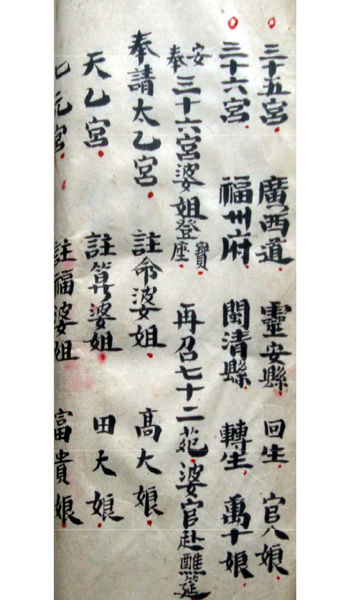 三十五宮 廣西道 靈安縣 回生 官八娘
三十六宮 福州府 閩清縣 轉生 萬十娘
安奉三十六宮婆姐登寶座 再召七十二苑婆官赴醮筵
奉請太乙宮 註命婆姐 高大娘
天乙宮 註筭婆姐 田大娘
元宮 註福婆姐 富貴娘